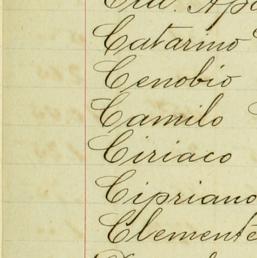 Catarino
Cenobio
Camilo
Ciriaco
Cipriano
Clemente